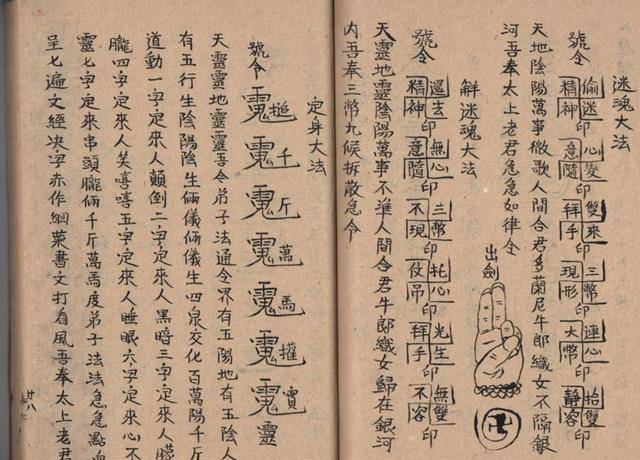 迷魂大法
號令 偷迷精神印 心变意隨印 雙來拜手印 三幣現形印 連心大幣印 抬雙靜容印
天地陰陽萬事微歌人間合君多蘭尼牛郎織女不隔銀
河吾奉太上老君急急如律令
出劍
卍
解迷魂大法
號令 還去精神印 無心意隨印 三幣不現印 牦心仗吊印 光生拜手印 無雙不容印
天靈地靈陰陽萬事不準人間合君牛郎織女歸在銀河
內吾奉三幣九候拆散急令
定身大法
號令 千 斤 萬 馬 權 實 靈
天靈靈地靈靈吾令弟子法通令界有五陽地有五陰人
有五行生陰陽陰生倆儀倆儀生四泉交化百萬陽千斤
道動一字定來人顛倒二字定來人黑暗三字定來人朦
朧四字定來人笑嘻嘻五字定來人睡眠六字定來人心不
靈七字定來串頭朧倆千斤萬馬度弟子法法急急點血
呈七遍文經决字赤作綱葉書文打看風吾奉太上老君
廿八